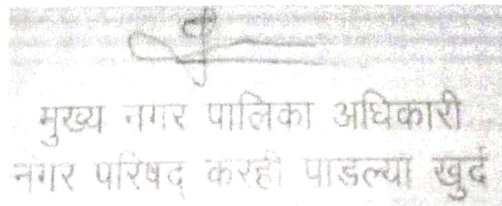 मुख्य नगर पालिका अधिकारी
नगर परिषद् करही पाडल्या खुर्द